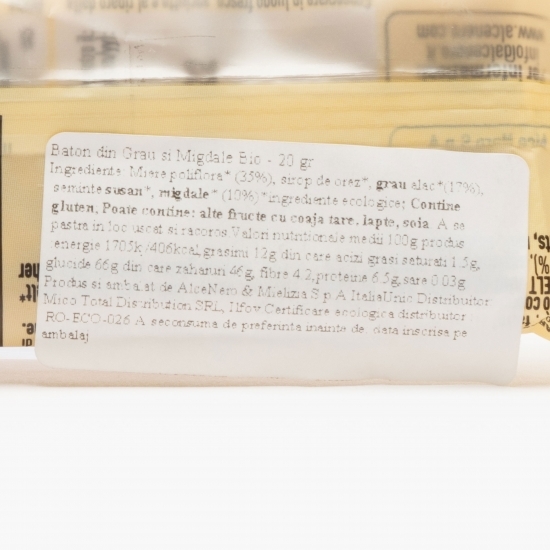 Baton din Grau si Migdale Bio - 20 gr
Ingrediente: Miere poliflora* (35%), sirop de orez*, grau alac*(17%),
seminte susan*, migdale* (10%)*ingrediente ecologice; Contine
gluten, Poate contine: alte fructe cu coaja tare, lapte, soia. A se
pastra in loc uscat si racoros. Valori nutritionale medii 100g produs
energie 1705kj/406kcal, grasimi 12g din care acizi grasi saturati 1.5g,
glucide 66g din care zaharuri 46g, fibre 4.2, proteine 6.5g, sare 0.03g
Produs si ambalat de AlceNero & Mielizia S.p.A Italia Unic Distribuitor
Mico Total Distribution SRL, Ilfov Certificare ecologica distribuitor
RO-ECO-026 A se consuma de preferinta inainte de, data inscrisa pe
ambalaj
www.alcenero.com
info@alcenero.it